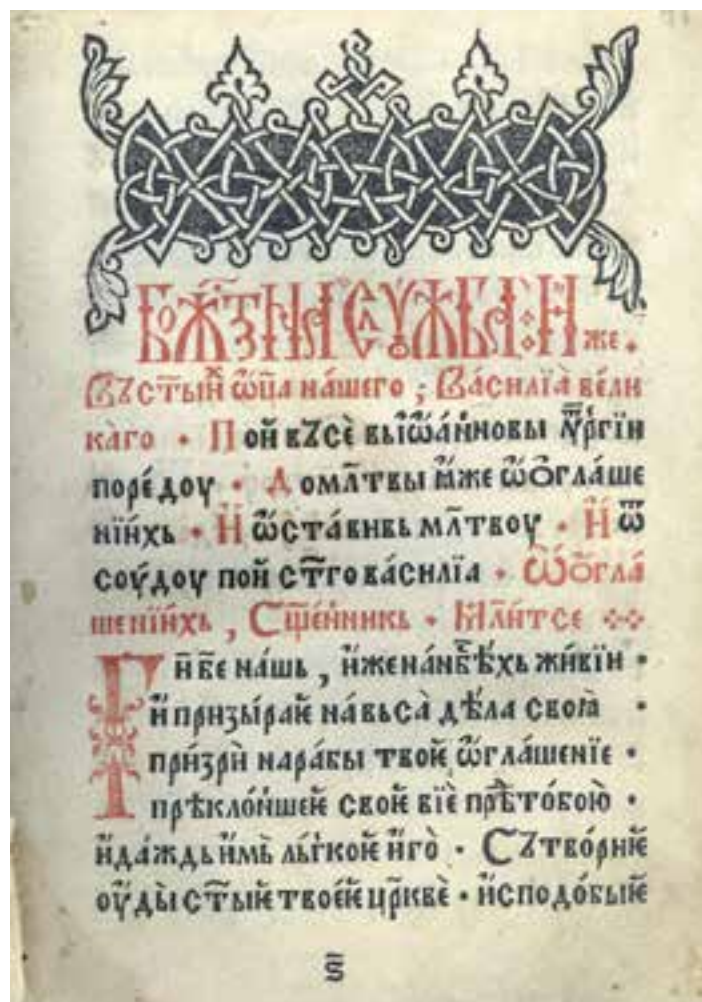 БОЖ҃ТЗНЫ СЛУЖБЫ: И҆же.
Въст҃ы́й ѿц҃а на́шего ; Васи́лїа̀ вели
ка́го • Пой въсѐ выїѡ҆а́нновы лүргїи
поре́доу • Домл҃твы и҆же ѡ҆ѡ҆гла́ше
нїи́хъ • И҆ ѡ҆ста́вивь мл҃твоу • И҆ ѿ
соу́доу пой ст҃го васи́лїа • Ѡ҆ѡ҆гла
шенїи́хь , Сщ҃е́нникь • Мл҃и́тсе
Ги҃ бе҃ на́шь , и҆же нан҃бѣхь жи́вїи •
и҆ призы́рае на́вьсѧ̀ дѣ́ла своꙗ •
при́зри нара́бы твое ѡ҆гла́шенїе •
прѣкло́ньшее свое вїѐ прѣ҃то́бою •
и҆да́ждь и҆мь льгкое и҆го̀ • Сътво́рие
оу҆ды ст҃ые твое́е цр҃квѐ • и҆сподо́бые
ѕ҃